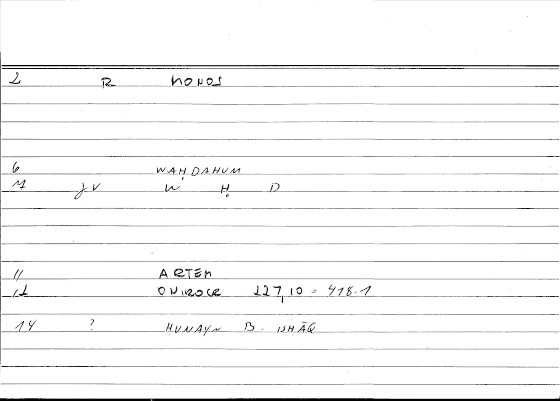 2 R MONOS
6 WAḤDAHUM
M JV W Ḥ D
11 ARTEM
12 ONIROCR 227,10 = 418.1
14 ? ḤUNAYN B. ISḤĀQ